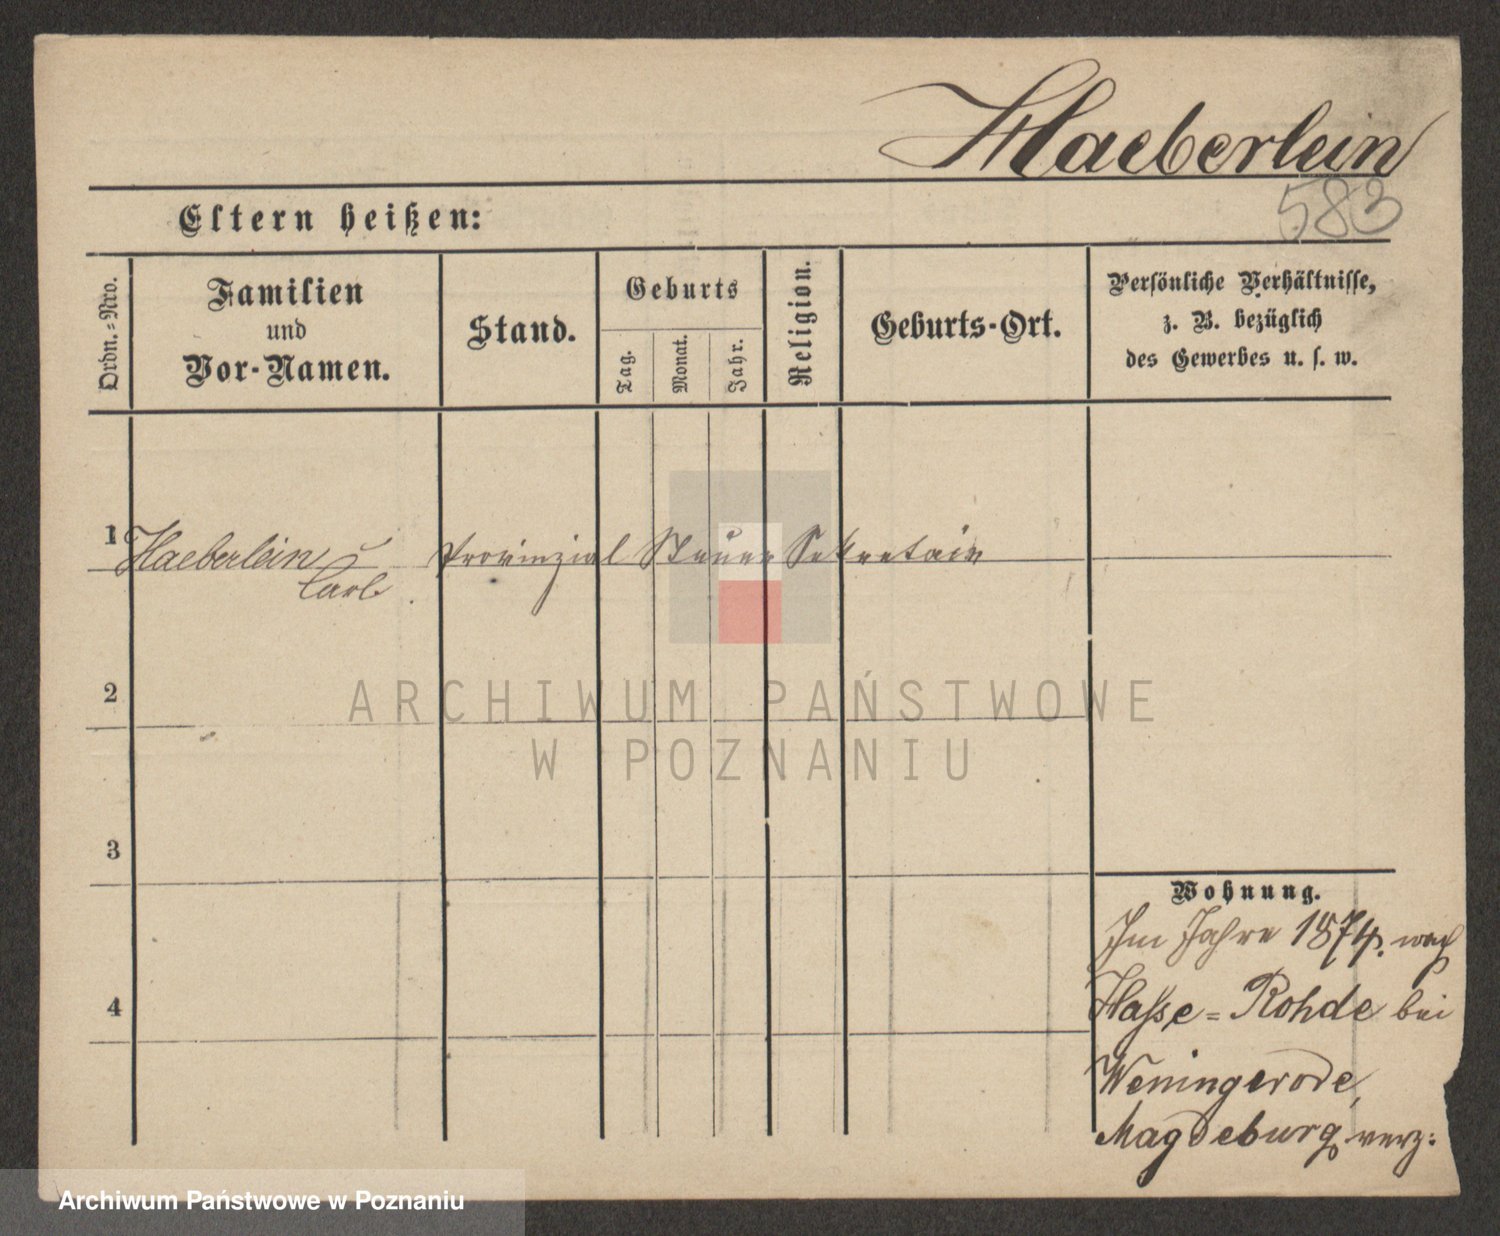 Haeberlein
583
Eltern heißen:
Ordn.=Nro.
Familien
und
Vor-Namen.
Stand.
Geburts
Tag.
Monat.
Jahr.
Religion.
Geburts-Ort.
Persönliche Verhältnisse,
z. B. bezüglich
des Gewerbes u. s. w.
1
Haeberlein
Carl
Provinzial Steuer Sekretair
2
ARCHIWUM PAŃSTWOWE
W POZNANIU
3
4
Wohnung.
Im Jahre 1874. nach
Hasse=Rohde bei
Werningerode,
Magdeburg verz:
Archiwum Państwowe w Poznaniu